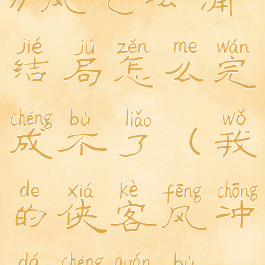 jié jú zěn me wán
结 局 怎 么 完
chéng bù liǎo wǒ
成 不 了 （ 我
de xiá kè fēng chōng
的 侠 客 风 冲
dá chéng quán bù